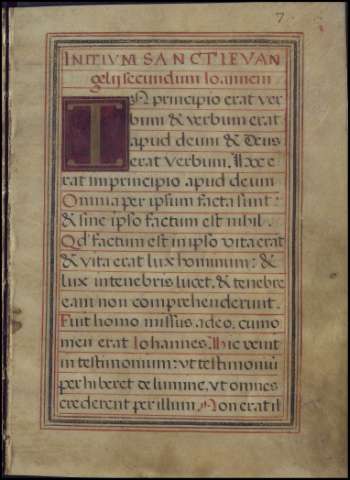 7
INITIVM SANCTI EVAN
gelij secundum Ioannem
IN principio erat ver
bum & verbum erat
apud deum & Deus
erat verbum. Hoc e
rat in principio apud deum
Omnia per ipsum facta sunt:
& sine ipso factum est nihil.
Qd' factum est in ipso vita erat
& vita erat lux hominum: &
lux in tenebris lucet, & tenebre
eam non comprehenderunt.
Fuit homo missus a deo, cui no
men erat Iohannes. Hic venit
in testimonium: vt testimoniū
perhiberet de lumine, vt omnes
crederent per illum. Non erat il